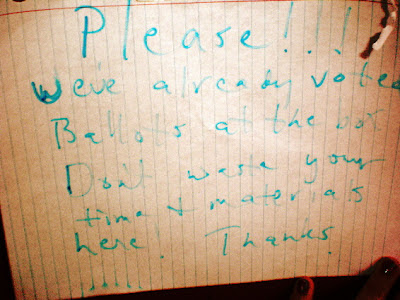 Please!!!
We've already voted
Ballots at the box
Don't waste your
time + materials
here! Thanks.